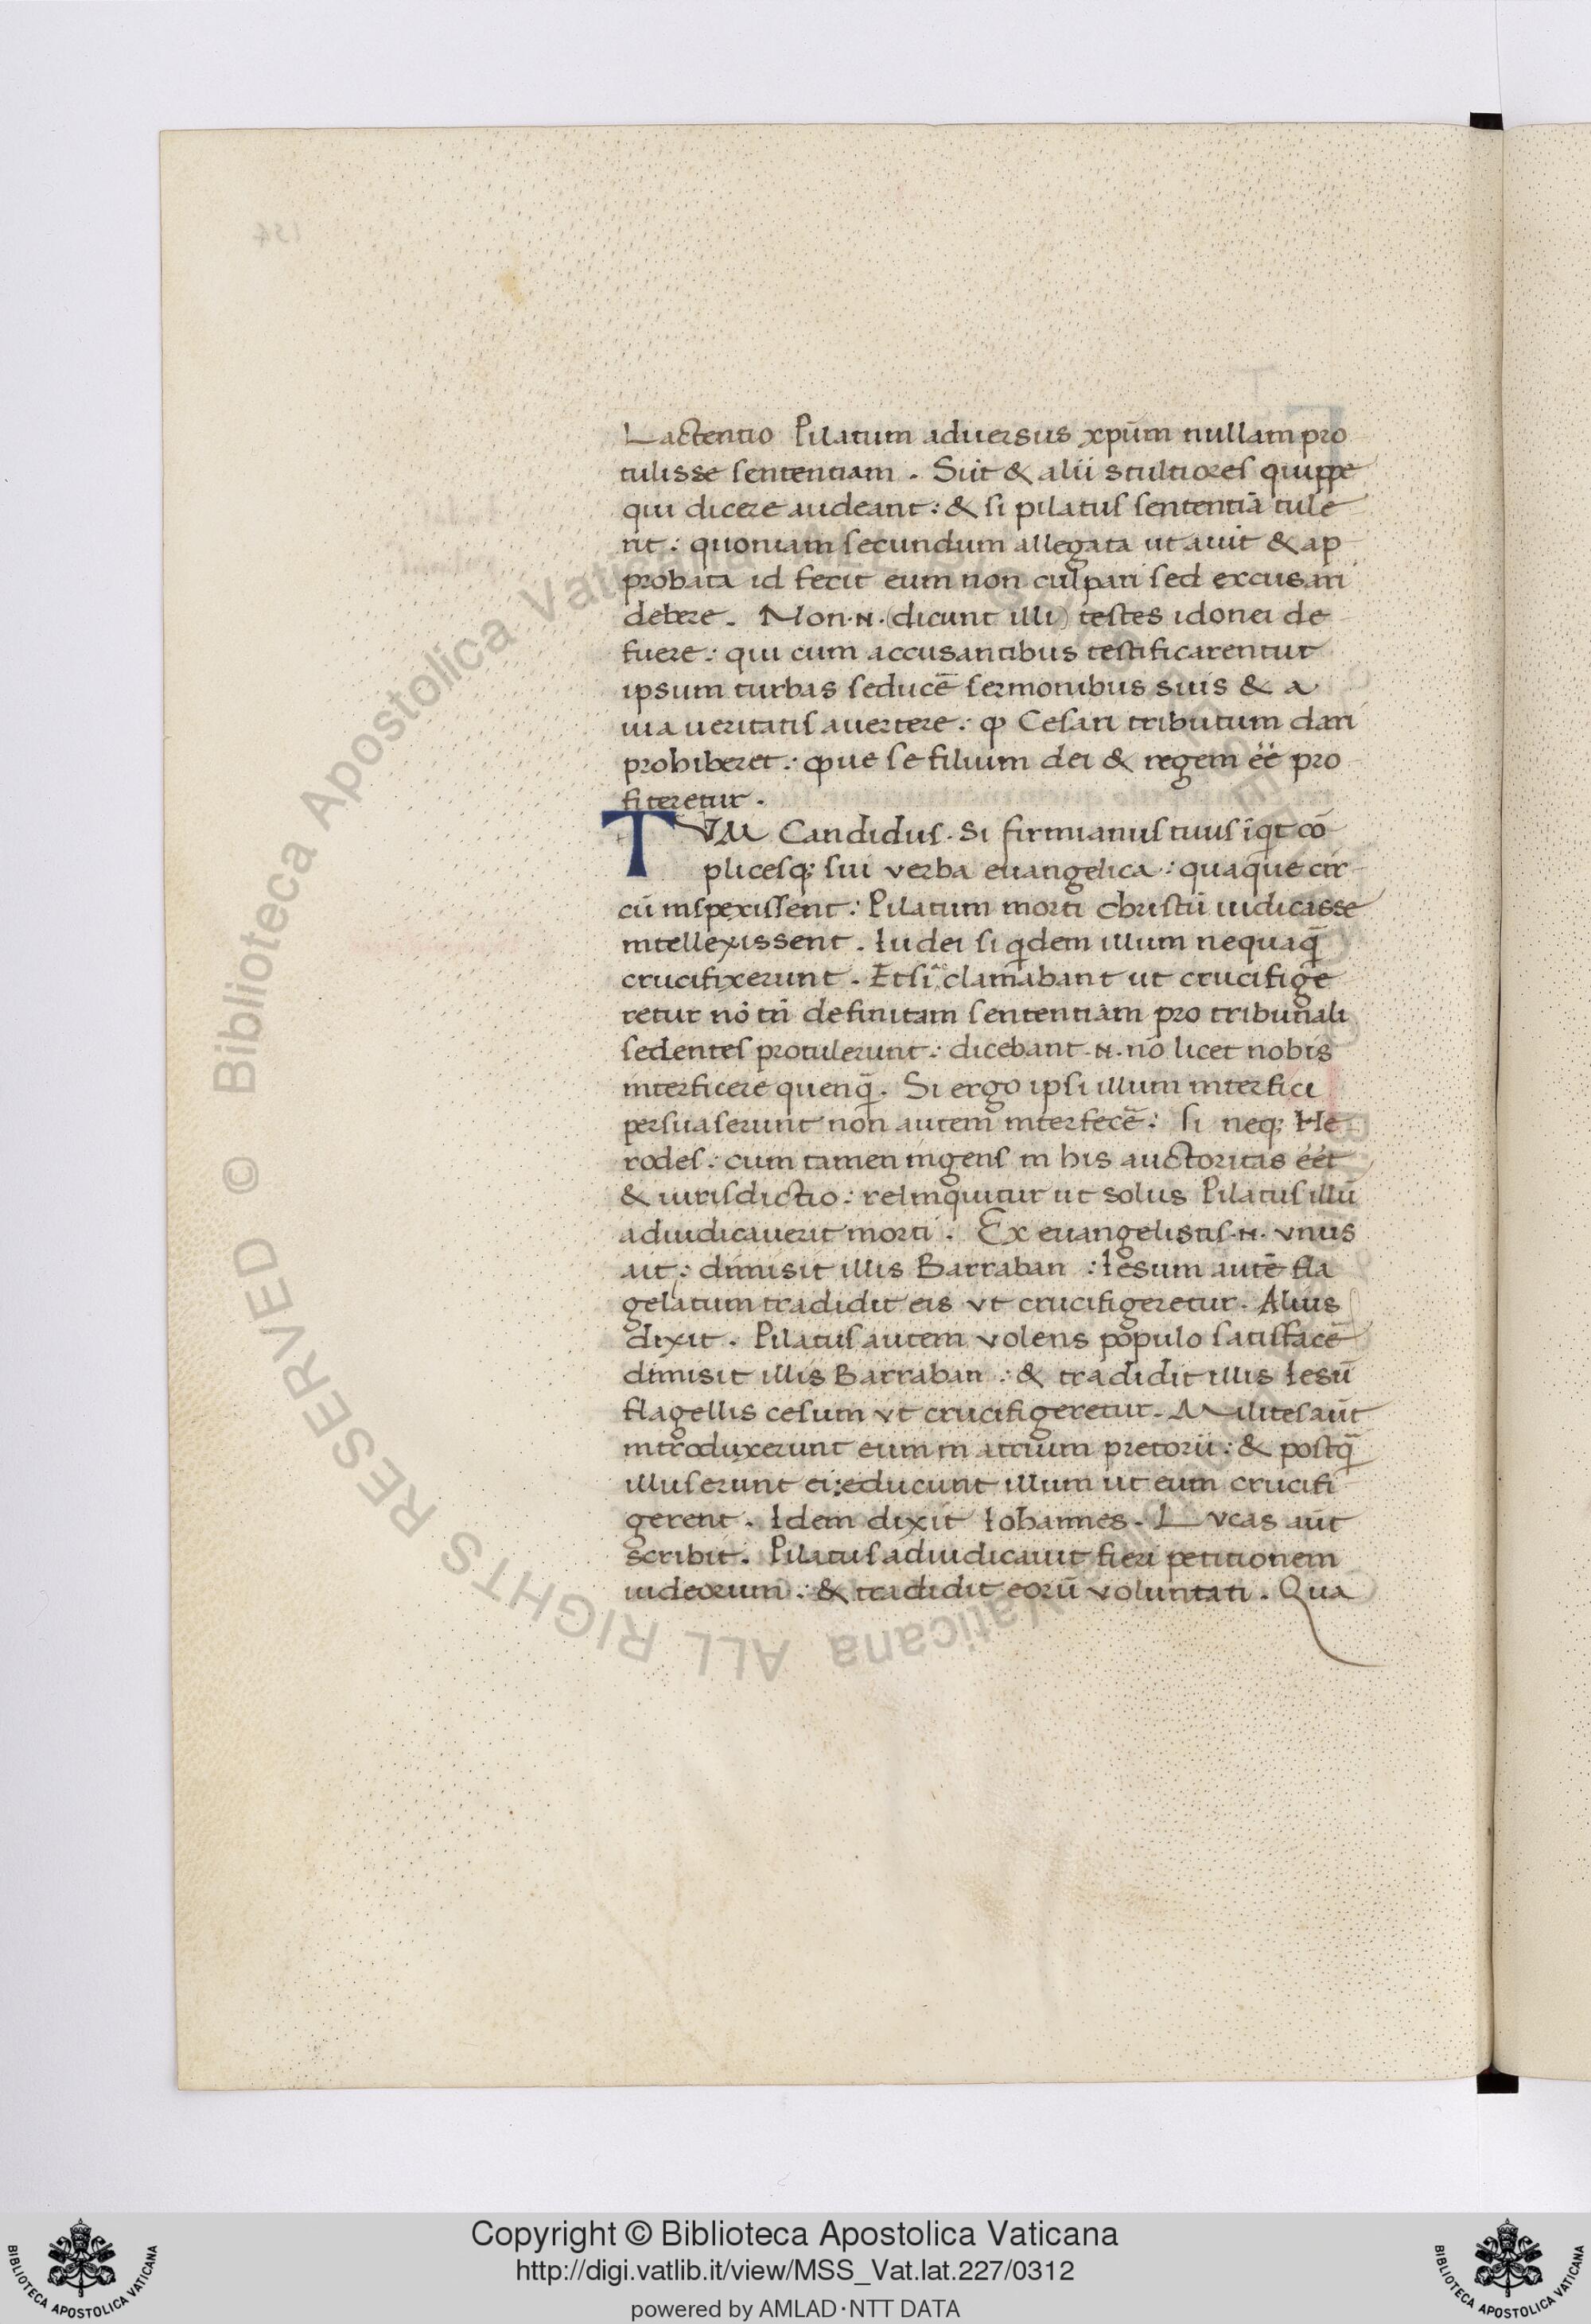 Lactentio Pilatum adversus xpūm nullam pro
tulisse sententiam. Sūt & alii stultiores quippe
qui dicere audeant: & si pilatus sententiā tule
rit: quoniam secundum allegata ut aiūt & ap
probata id fecit eum non culpari sed excusari
debere. Non .N. (dicunt illi) testes idonei de
fuere: qui cum accusantibus testificarentur
ipsum turbas seducē sermonibus suis & a
uia ueritatis auertere: ꝙ Cesari tributum dari
prohiberet: ꝙue se filium dei & regem ēē pro
fiteretur.
TVM Candidus. Si firmianus tuus īqt cō
plicesq; sui verba euangelica: quaque cir
cū inspexissent: Pilatum morti christū iudicasse
intellexissent. Iudei si qdem illum nequaq̄
crucifixerunt. Etsi .n. clamabant ut crucifige
retur nō tn̄ definitam sententiam pro tribunali
sedentes protulerunt: dicebant .N. nō licet nobis
interficere quenq̄. Si ergo ipsi illum interfici
persuaserunt non autem interfecē: si neq; He
rodes: cum tamen ingens in his auctoritas ēēt
& iurisdictio: relinquitur ut solus Pilatus illū
adiudicauerit morti. Ex euangelistis .N. vnus
ait: dimisit illis Barraban: Iesum autē fla
gelatum tradidit eis vt crucifigeretur. Alius
dixit. Pilatus autem volens populo satisfacē
dimisit illis Barraban: & tradidit illis Iesū
flagellis cesum vt crucifigeretur. Milites aūt
introduxerunt eum in atrium pretorii: & postq̄
illuserunt ei: educunt illum ut eum crucifi
gerent. Idem dixit Iohannes. Lvcas aūt
scribit. Pilatus adiudicauit fieri petitionem
iudeorum: & tradidit eorū voluntati. Qua
© Biblioteca Apostolica Vaticana ALL RIGHTS RESERVED
Copyright © Biblioteca Apostolica Vaticana
http://digi.vatlib.it/view/MSS_Vat.lat.227/0312
powered by AMLAD·NTT DATA
BIBLIOTECA APOSTOLICA VATICANA
BIBLIOTECA APOSTOLICA VATICANA